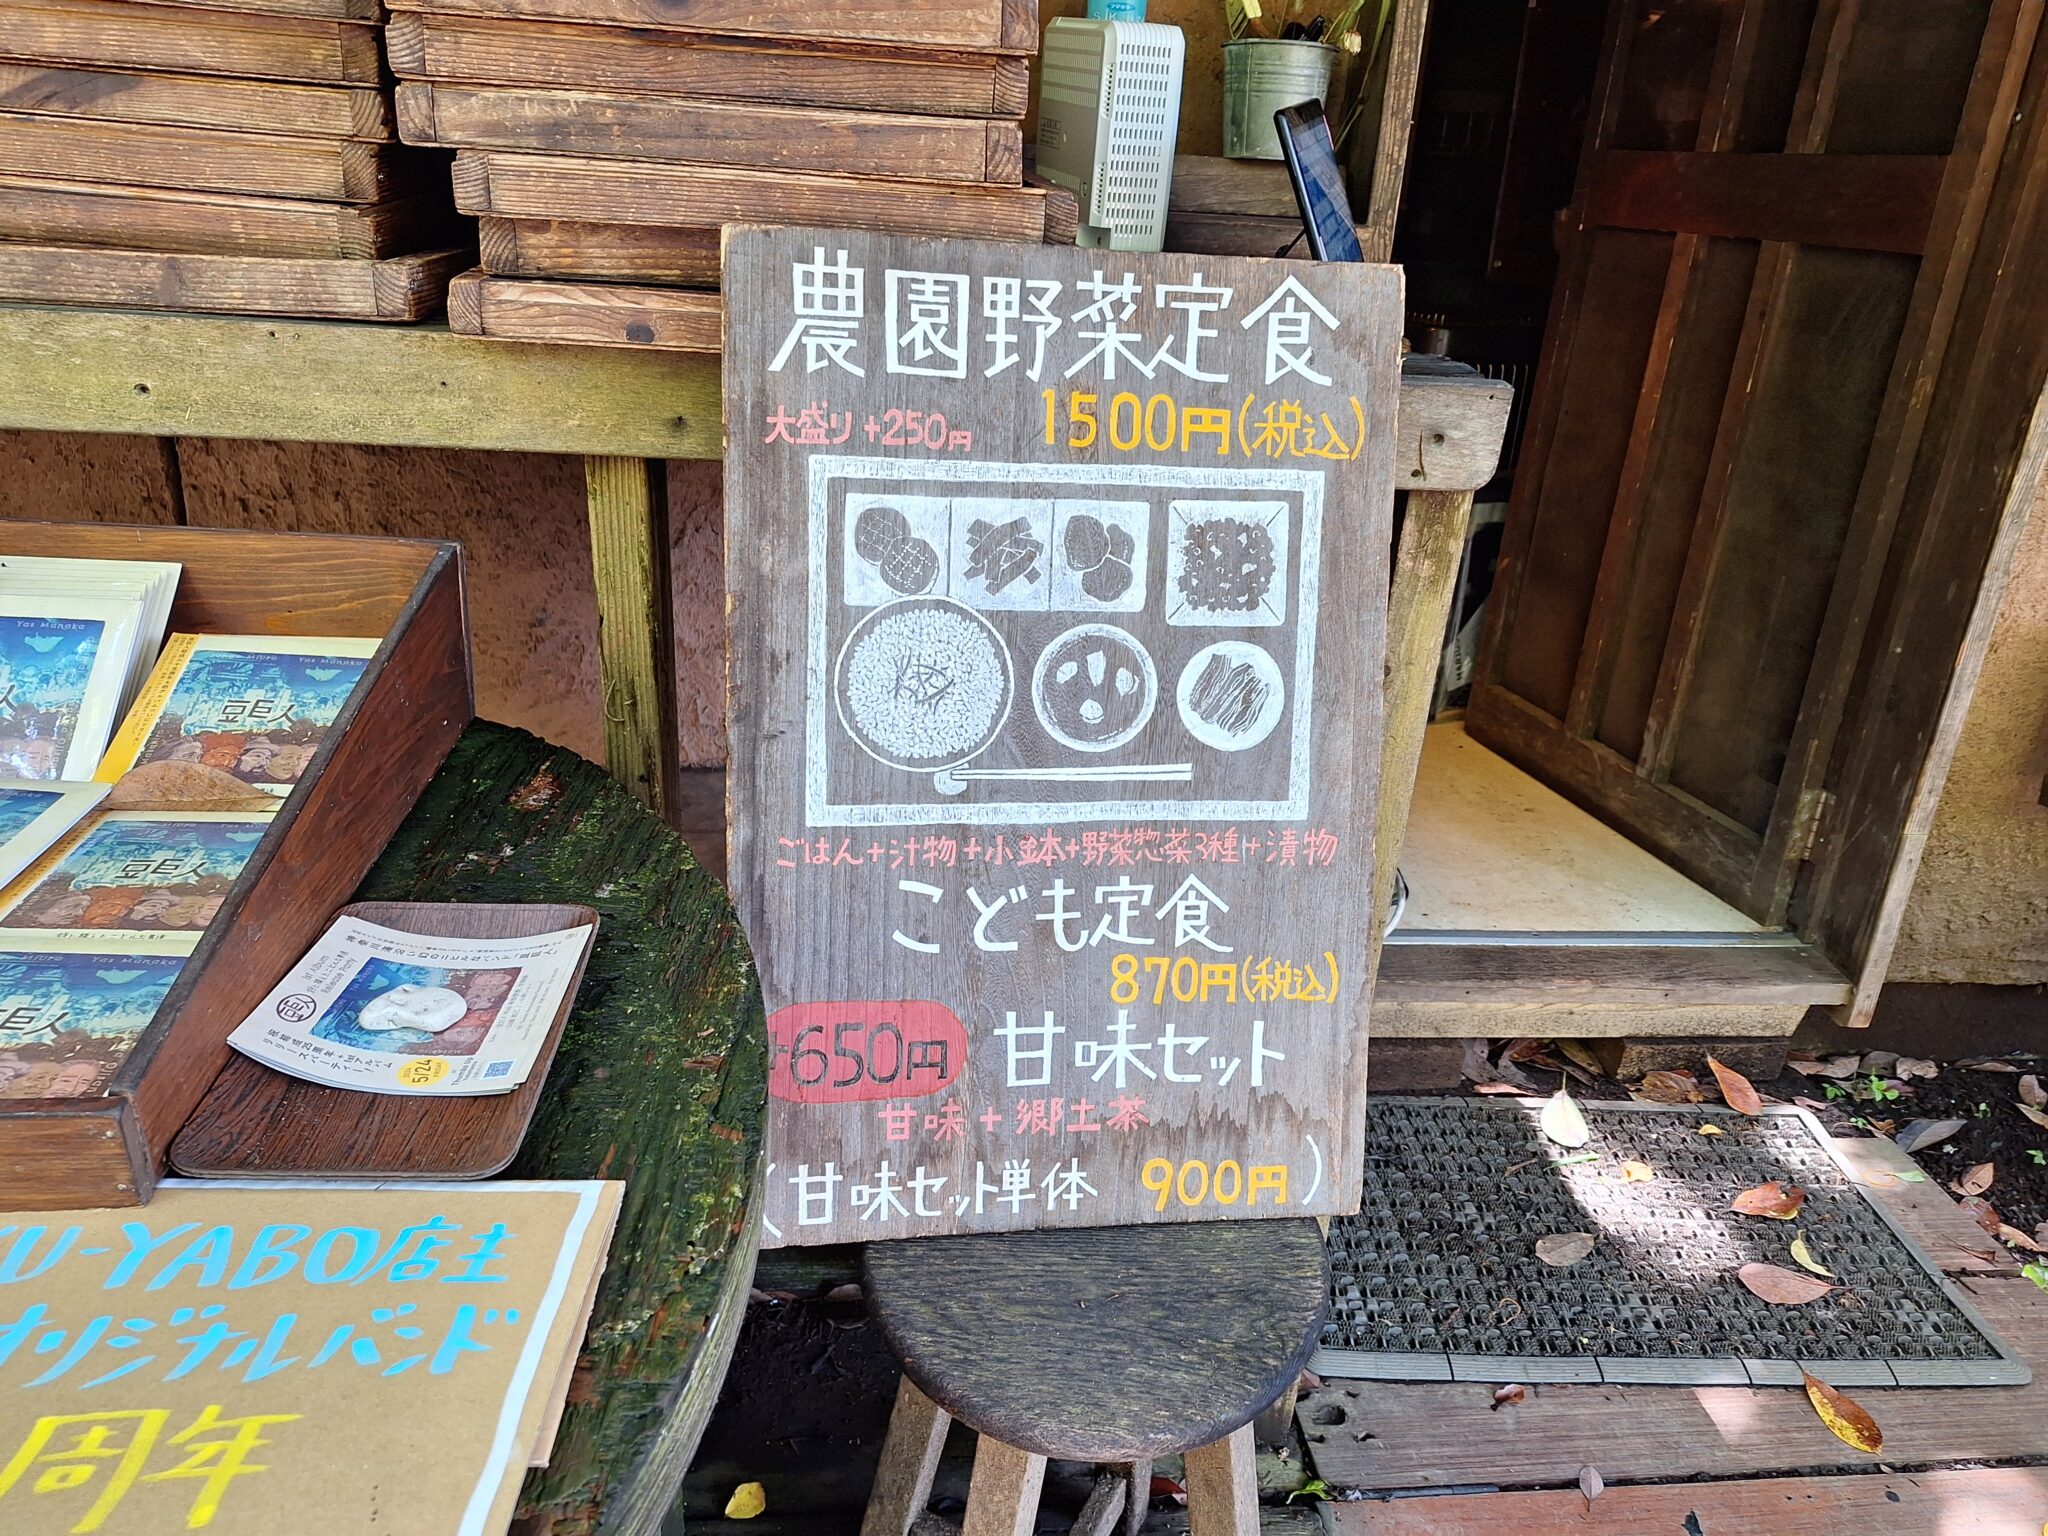 農園野菜定食
大盛り+250円
1500円(税込)
ごはん+汁物+小鉢+野菜惣菜3種+漬物
こども定食
870円(税込)
+650円
甘味セット
甘味+郷土茶
(甘味セット単体 900円)
Yas Manaka
Junzo Miura Yas Manaka
豆巨人
豆巨人
Miura Yas Manaka
巨人
1st Album
Release Party
リリースパーティー!
5/24
U-YABO店主
オリジナルバンド
周年